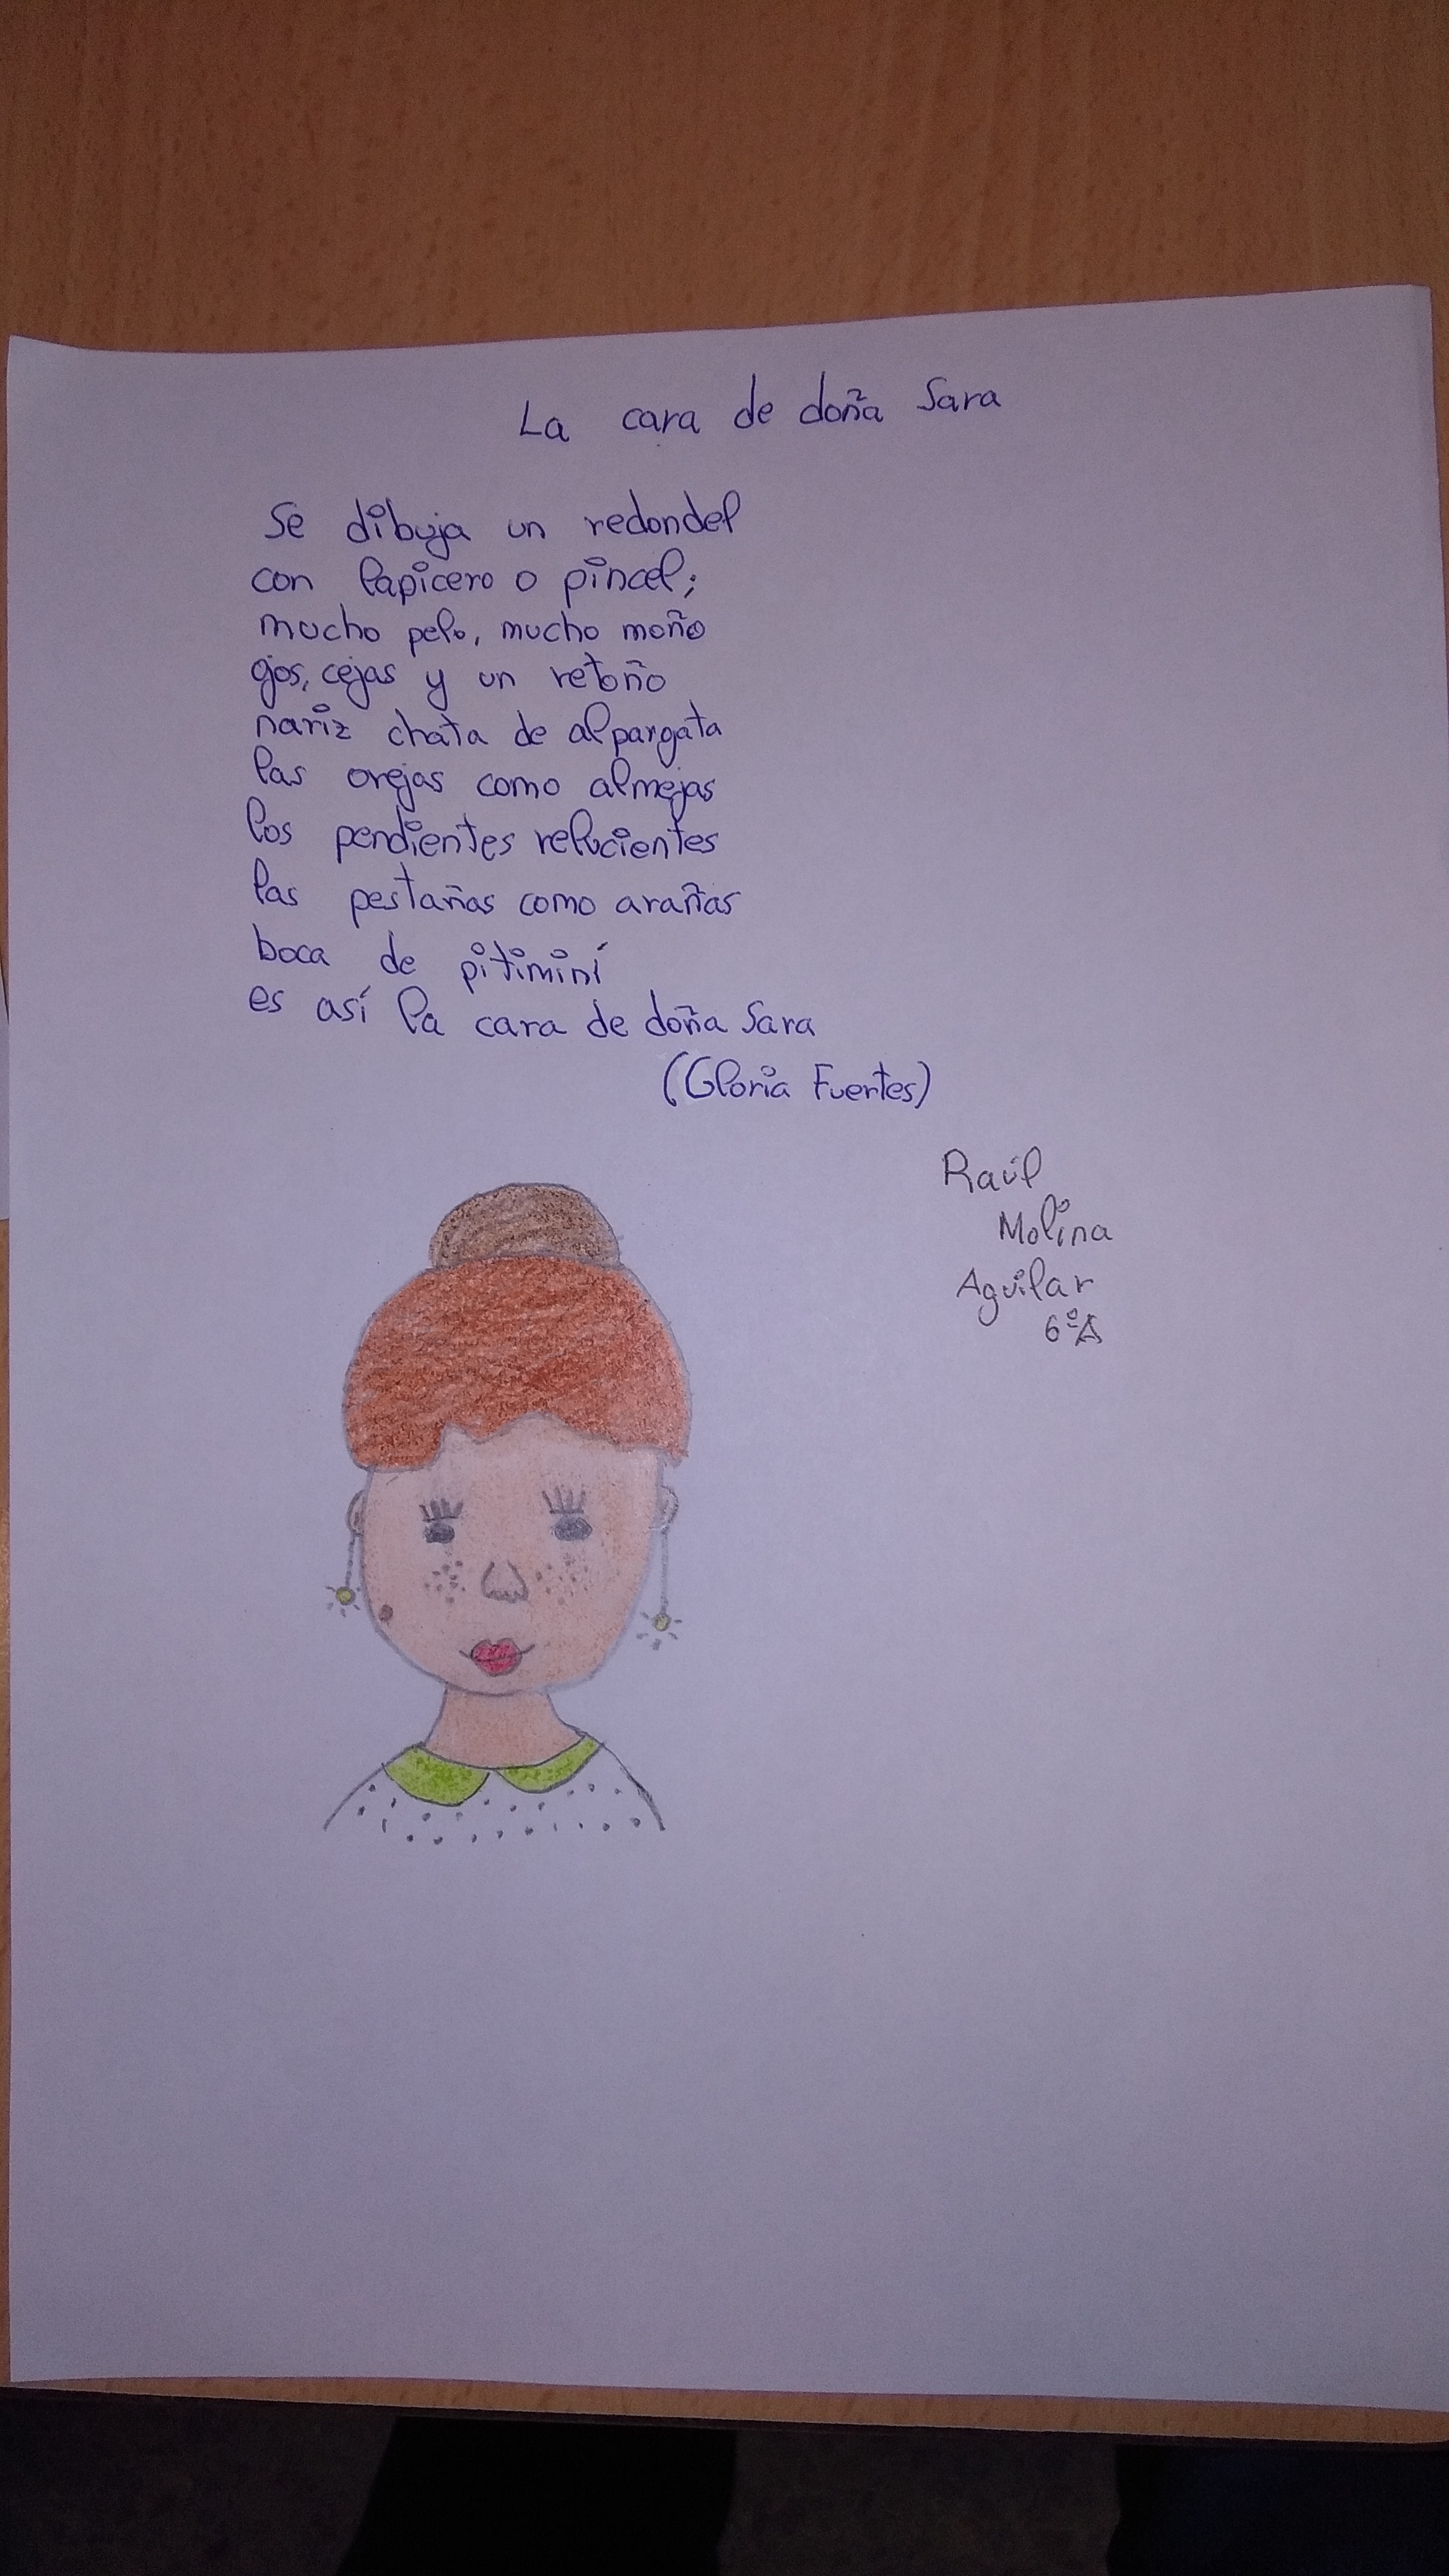 La cara de doña Sara
Se dibuja un redondel
con lapicero o pincel;
mucho pelo, mucho moño
ojos, cejas y un retoño
nariz chata de alpargata
las orejas como almejas
los pendientes relucientes
las pestañas como arañas
boca de pitiminí
es así la cara de doña Sara
(Gloria Fuertes)
Raúl
Molina
Aguilar
6ºA